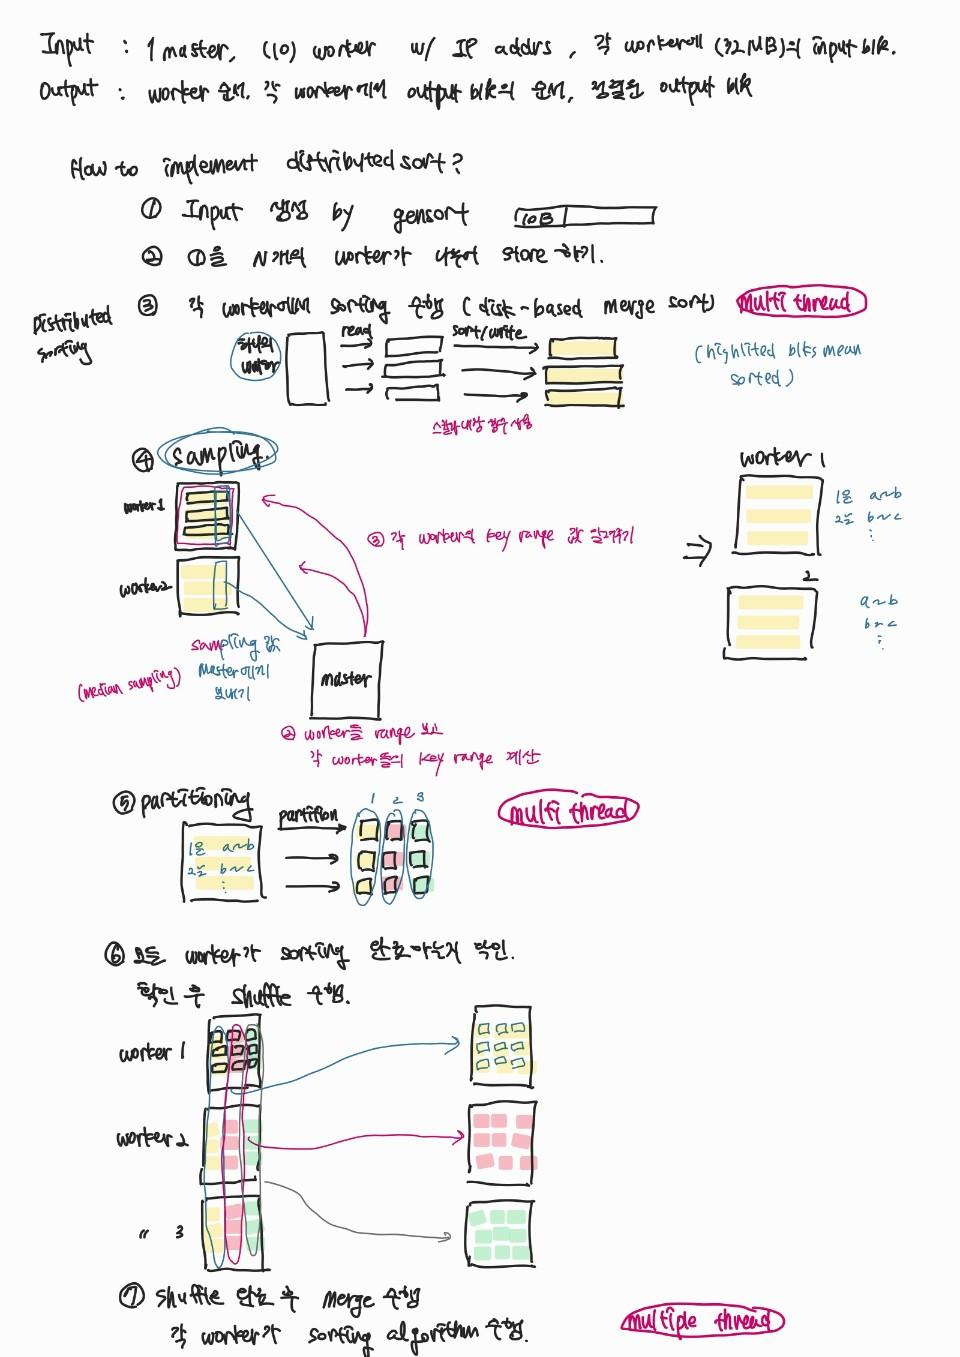 Input : 1 master, (10) worker w/ IP addrs, 각 worker에 (32MB)의 input blk.
Output : worker 순서, 각 worker에서 output blk의 순서, 정렬된 output blk
How to implement distributed sort?
① Input 생성 by gensort 10B
② ①을 N개의 worker가 나눠 store 하기.
Distributed sorting
③ 각 worker에서 sorting 수행 (disk-based merge sort) multi thread
하나의 worker
read
sort/write
(highlited blks mean
sorted)
스칼라 내장 함수 사용
④ sampling.
worker1
worker2
sampling 값
Master에게
보내기
(median sampling)
master
② worker들 range 보고
각 worker들의 key range 계산
③ 각 worker의 key range 값 알려주기
⇒
worker 1
1은 a~b
2는 b~c
⋮
2
a~b
b~c
⋮
⑤ partitioning
multi thread
partition
1 2 3
1은 a~b
2는 b~c
⋮
⑥ 모든 worker가 sorting 완료하는지 확인.
확인 후 shuffle 수행.
worker 1
worker 2
〃 3
⑦ shuffle 완료 후 merge 수행
각 worker가 sorting algorithm 수행.
multiple thread